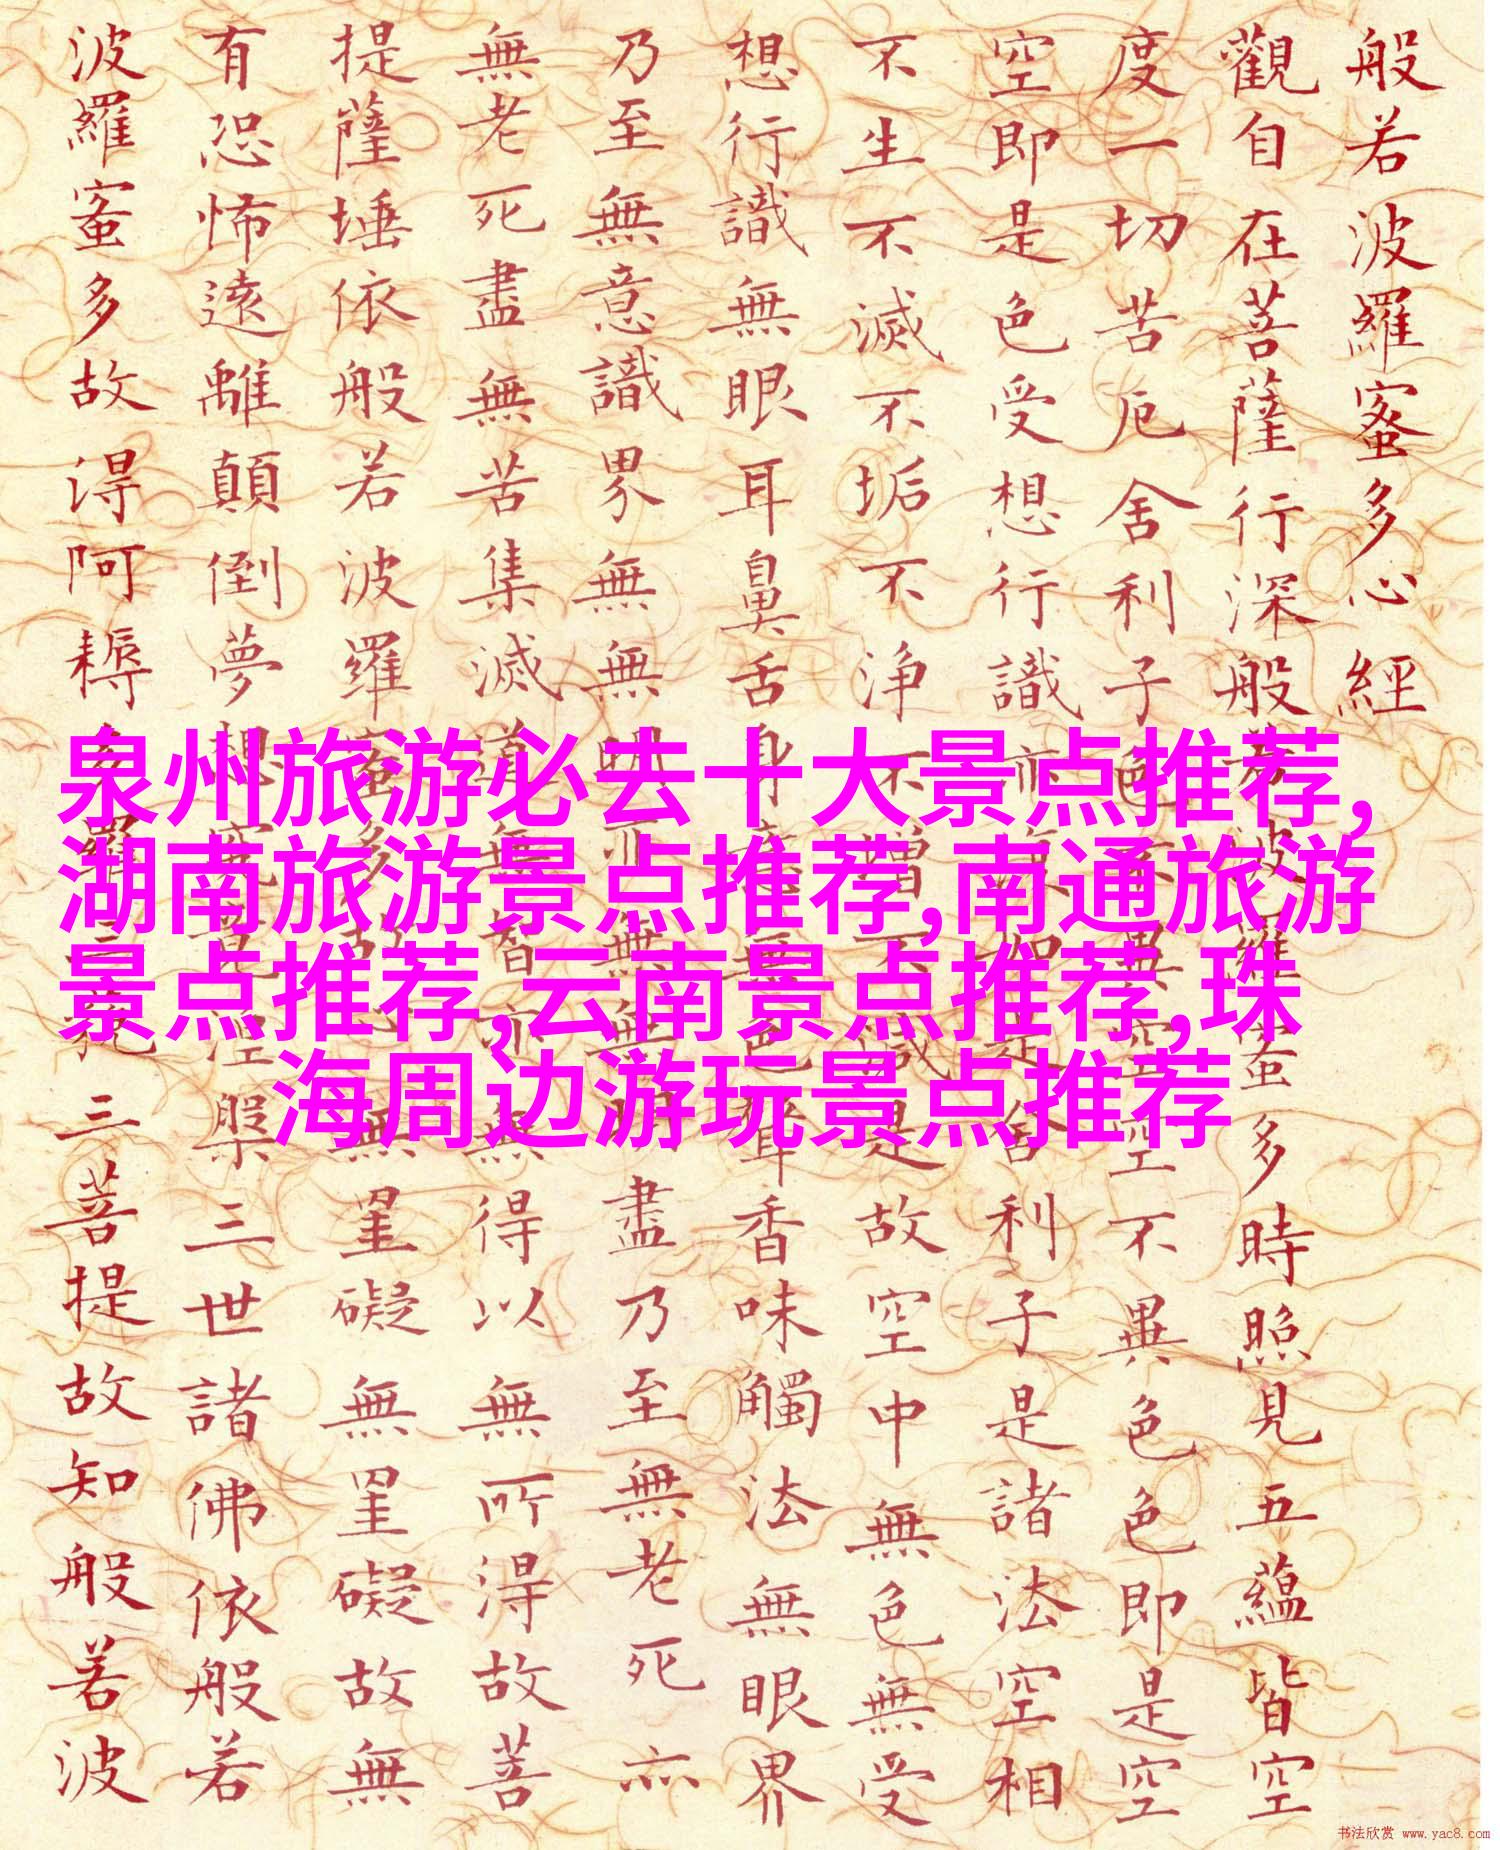 般若波羅蜜多心經
觀自在菩薩行深般若波羅蜜多時照見五蘊皆空
度一切苦厄舍利子色不異空空不異色色即是空
空即是色受想行識亦復如是舍利子是諸法空相
不生不滅不垢不浄不增不減是故空中無色無受
想行識無眼耳鼻舌身意無色聲香味觸法無眼界
乃至無意識界無無明亦無無明盡乃至無老死亦
無老死盡無苦集滅道無智亦無得以無所得故菩
提薩埵依般若波羅蜜多故心無罣礙無罣礙故無
有恐怖遠離顛倒夢想究竟涅槃三世諸佛依般若
波羅蜜多故得阿耨多羅三藐三菩提故知般若波
泉州旅游必去十大景点推荐,
湖南旅游景点推荐,南通旅游
景点推荐,云南景点推荐,珠
海周边游玩景点推荐
书法欣赏 www.yac8.com